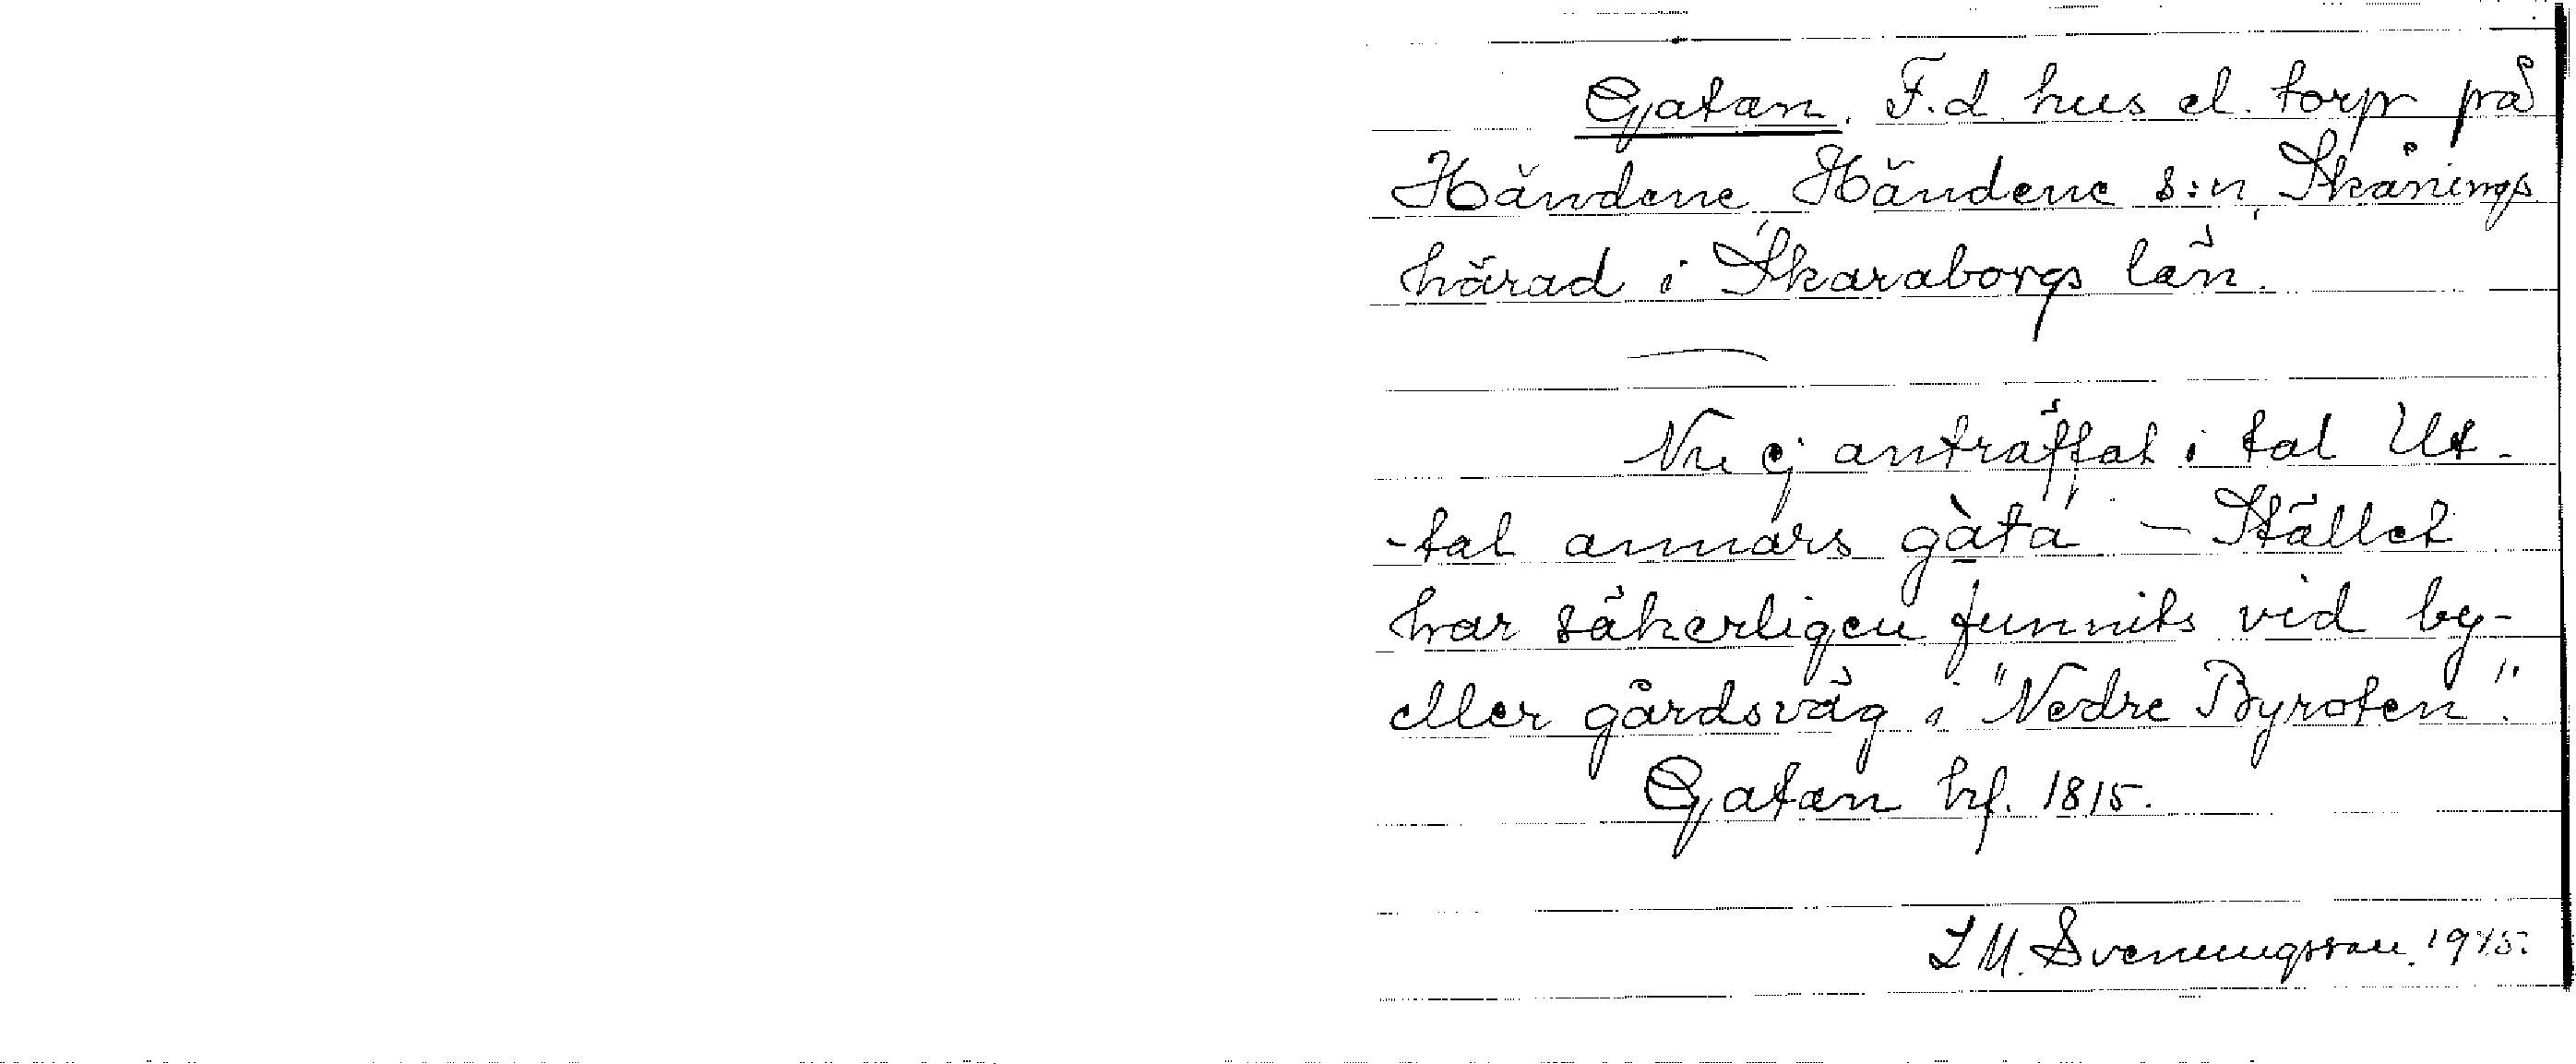 Gatan. F.d. hus el. torp på
Händene, Händene s:n, Skånings
härad i Skaraborgs län.
Nu ej anträffat i tal Ut-
-tal annars gàta – Stället
har säkerligen funnits vid by-
eller gårdsväg i "Nedre Byroten".
Gatan hf. 1815.
I M. Svenungsson. 1945.